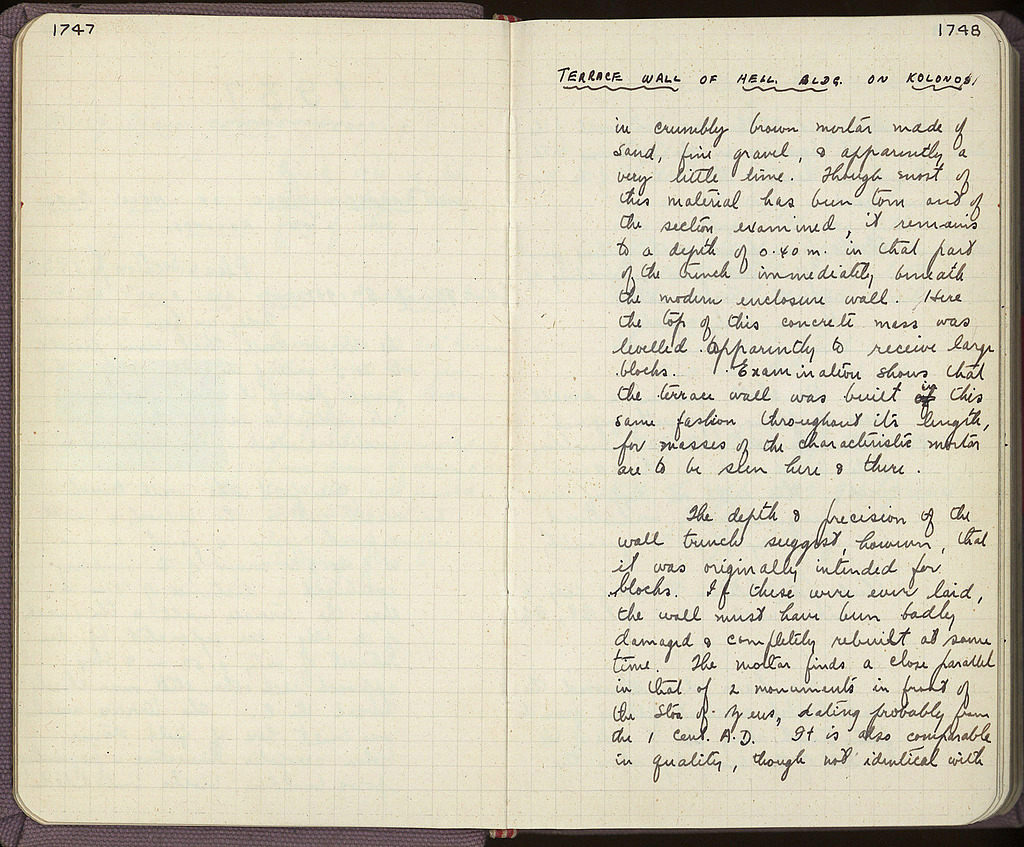 1747
1748
TERRACE WALL OF HELL. BLDG. ON KOLONOS
in crumbly brown mortar made of
sand, fine gravel, & apparently a
very little lime. Though most of
this material has been torn out of
the section examined, it remains
to a depth of 0.40 m. in that part
of the trench immediately beneath
the modern enclosure wall. Here
the top of this concrete mass was
levelled apparently to receive large
blocks. Examination shows that
the terrace wall was built in this
same fashion throughout its length,
for masses of the characteristic mortar
are to be seen here & there.
The depth & precision of the
wall trench suggest, however, that
it was originally intended for
blocks. If these were ever laid,
the wall must have been badly
damaged & completely rebuilt at some
time. The mortar finds a close parallel
in that of 2 monuments in front of
the Stoa of Zeus, dating probably from
the 1 cent. A.D. It is also comparable
in quality, though not identical with